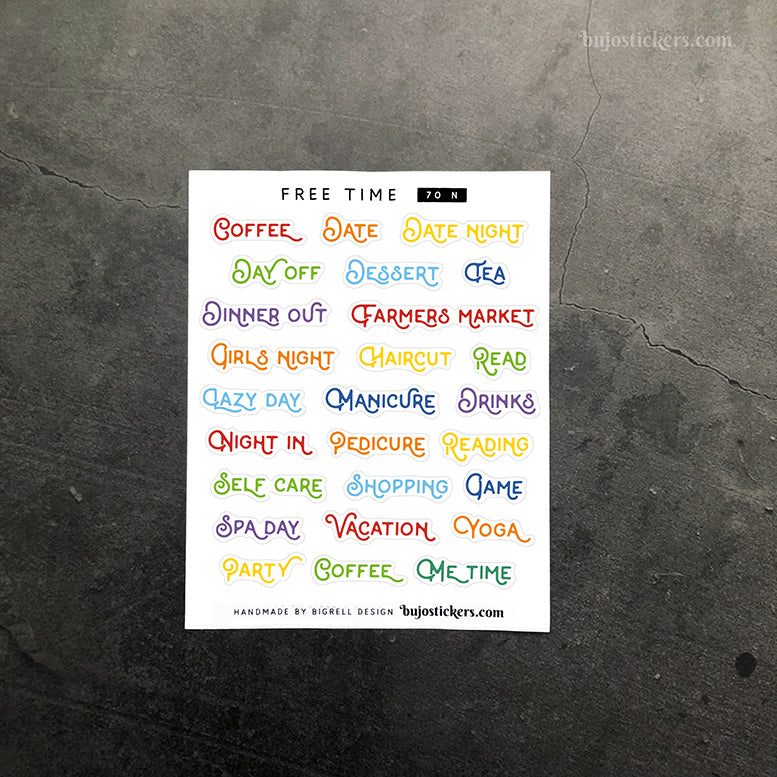 bujostickers.com
FREE TIME 70 N
COFFEE DATE DATE NIGHT
DAY OFF DESSERT TEA
DINNER OUT FARMERS MARKET
GIRLS NIGHT HAIRCUT READ
LAZY DAY MANICURE DRINKS
NIGHT IN PEDICURE READING
SELF CARE SHOPPING GAME
SPA DAY VACATION YOGA
PARTY COFFEE ME TIME
HANDMADE BY BIGRELL DESIGN bujostickers.com